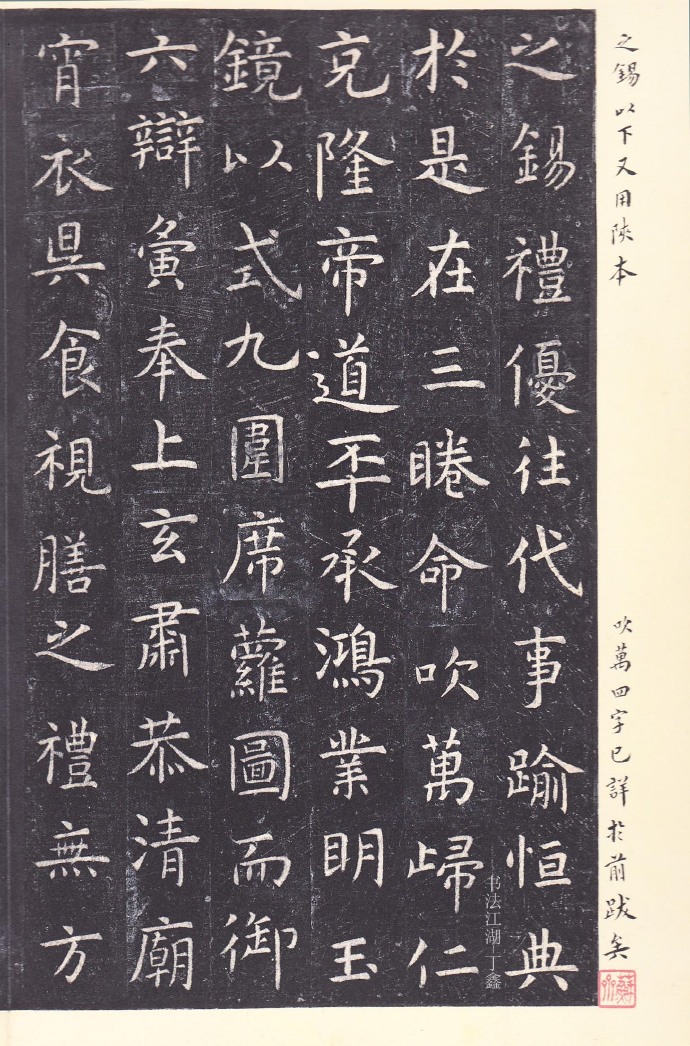 之錫以下又用陝本
吹萬四字已詳於前跋矣
之錫禮優往代事踰恒典
於是在三睠命吹萬歸仁
克隆帝道丕承鴻業明玉
鏡以式九圍席蘿圖而御
六辯寅奉上玄肅恭清廟
宵衣昃食視膳之禮無方
书法江湖 丁鑫